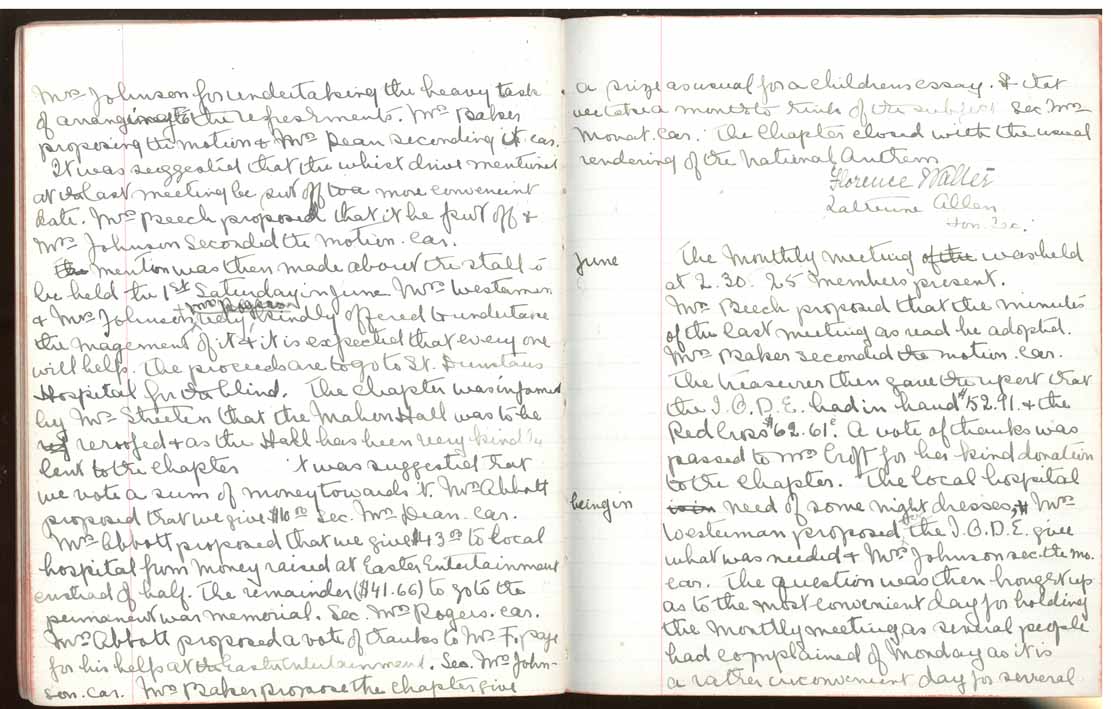 Mrs Johnson for undertaking the heavy task
of arranging the refreshments. Mrs Baker
proposing the motion & Mrs Dean seconding it. car.
It was suggested that the whist drive mentioned
at the last meeting be put off to a more convenient
date. Mrs Beech proposed that it be put off &
Mrs Johnson seconded the motion. car.
the mention was then made about the stall to
be held the 1st Saturday in June Mrs Westerman
+ Mrs Rogers
& Mrs Johnson, very kindly offered to undertake
the magement of it & it is expected that every one
will help. The proceeds are to go to St. Dunstans
Hospital for the blind. The chapter was informed
by Mrs Streeten that the Mahon Hall was to be
reroofed & as the Hall has been very kindly
lent to the chapter it was suggested that
we vote a sum of money towards it. Mrs Abbott
proposed that we give $10 00 Sec. Mrs Dean. car.
Mrs Abbott proposed that we give $43 00 to local
hospital from money raised at Easter Entertainment
enstead of half. The remainder ($41.66) to go to the
permanent war memorial. Sec. Mrs Rogers. car.
Mrs Abbott proposed a vote of thanks to Mr F. page
for his helps at the Easter Entertainment. Sec. Mrs John-
son. car. Mrs Baker propose the chapter give
a prize as usual for a childrens essay. & that
we take a month to think of the subject Sec. Mrs
Monat. car. The Chapter closed with the usual
rendering of the National Anthem
Florence Walter
Katherine Allen
Hon. Sec.
June
The Monthly meeting of the was held
at 2.30. 25 members present.
Mrs Beech proposed that the minutes
of the last meeting as read be adopted.
Mrs Baker seconded the motion. car.
The treasurer then gave the report that
the I.O.D.E. had in hand $52.91. & the
Red Cross $62.61c. A vote of thanks was
passed to Mrs Croft for her kind donation
to the chapter. The local hospital
being in
is in need of some night dresses, Mrs
Westerman proposed the I.O.D.E. give
what was needed & Mrs Johnson sec. the mo.
car. The question was then brought up
as to the most convenient day for holding
the monthly meeting as several people
had complained of Monday as it is
a rather inconvenient day for several